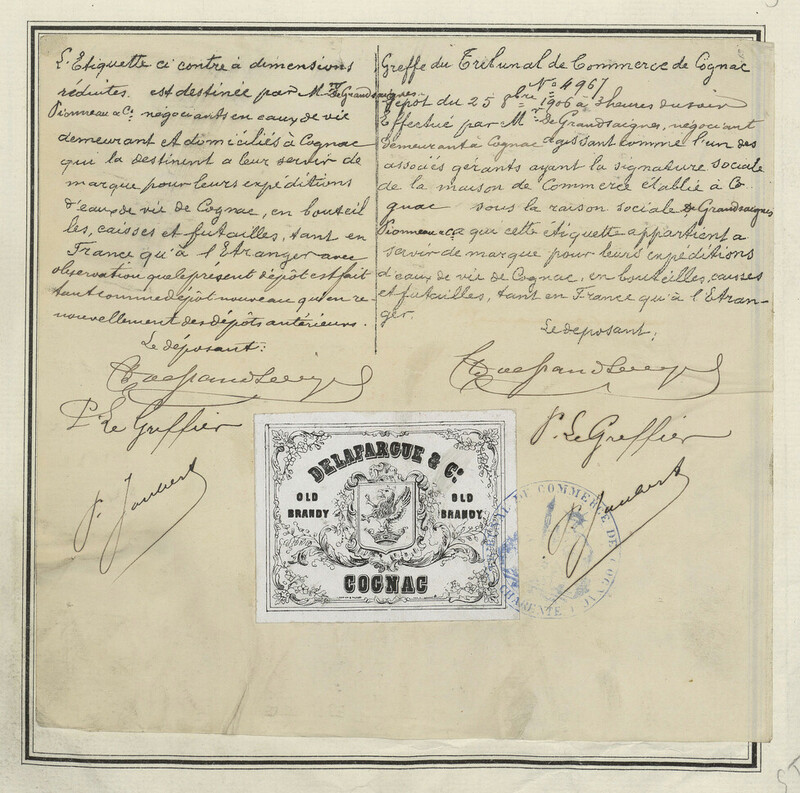 L'Etiquette ci contre à dimensions
réduites. est destinée par MM. De Grandsaignes
Pionneau & Cie négociants en eaux de vie
demeurant et domiciliés à Cognac
qui la destinent a leur servir de
marque pour leurs expéditions
d'eaux de vie de Cognac, en bouteil
les, caisses et futailles, tant en
France qu'à l'Etranger avec
observation que le present dépôt est fait
tant comme dépôt nouveau qu'en re-
nouvellement des dépôts antérieurs.
Le déposant:
P. Le Greffier
P. Joubert
Greffe du Tribunal de Commerce de Cognac
No 4967
Dépot du 25 8bre 1906 à 3 heures du soir
Effectué par Mr. De Grandsaignes, négociant
demeurant à Cognac agissant comme l'un des
associés gérants ayant la signature sociale
de la maison de Commerce établie à Co
gnac sous la raison sociale De Grandsaignes
Pionneau & Ca qui cette étiquette appartient a
servir de marque pour leurs expéditions
d'eaux de vie de Cognac, en bouteilles, caisses
et futailles, tant en France qu'à l'Etran-
ger.
Le déposant:
P. Le Greffier
P. Joubert
DELAFARGUE & Co.
OLD BRANDY
OLD BRANDY
COGNAC
TRIBUNAL DE COMMERCE DE COGNAC
CHARENTE